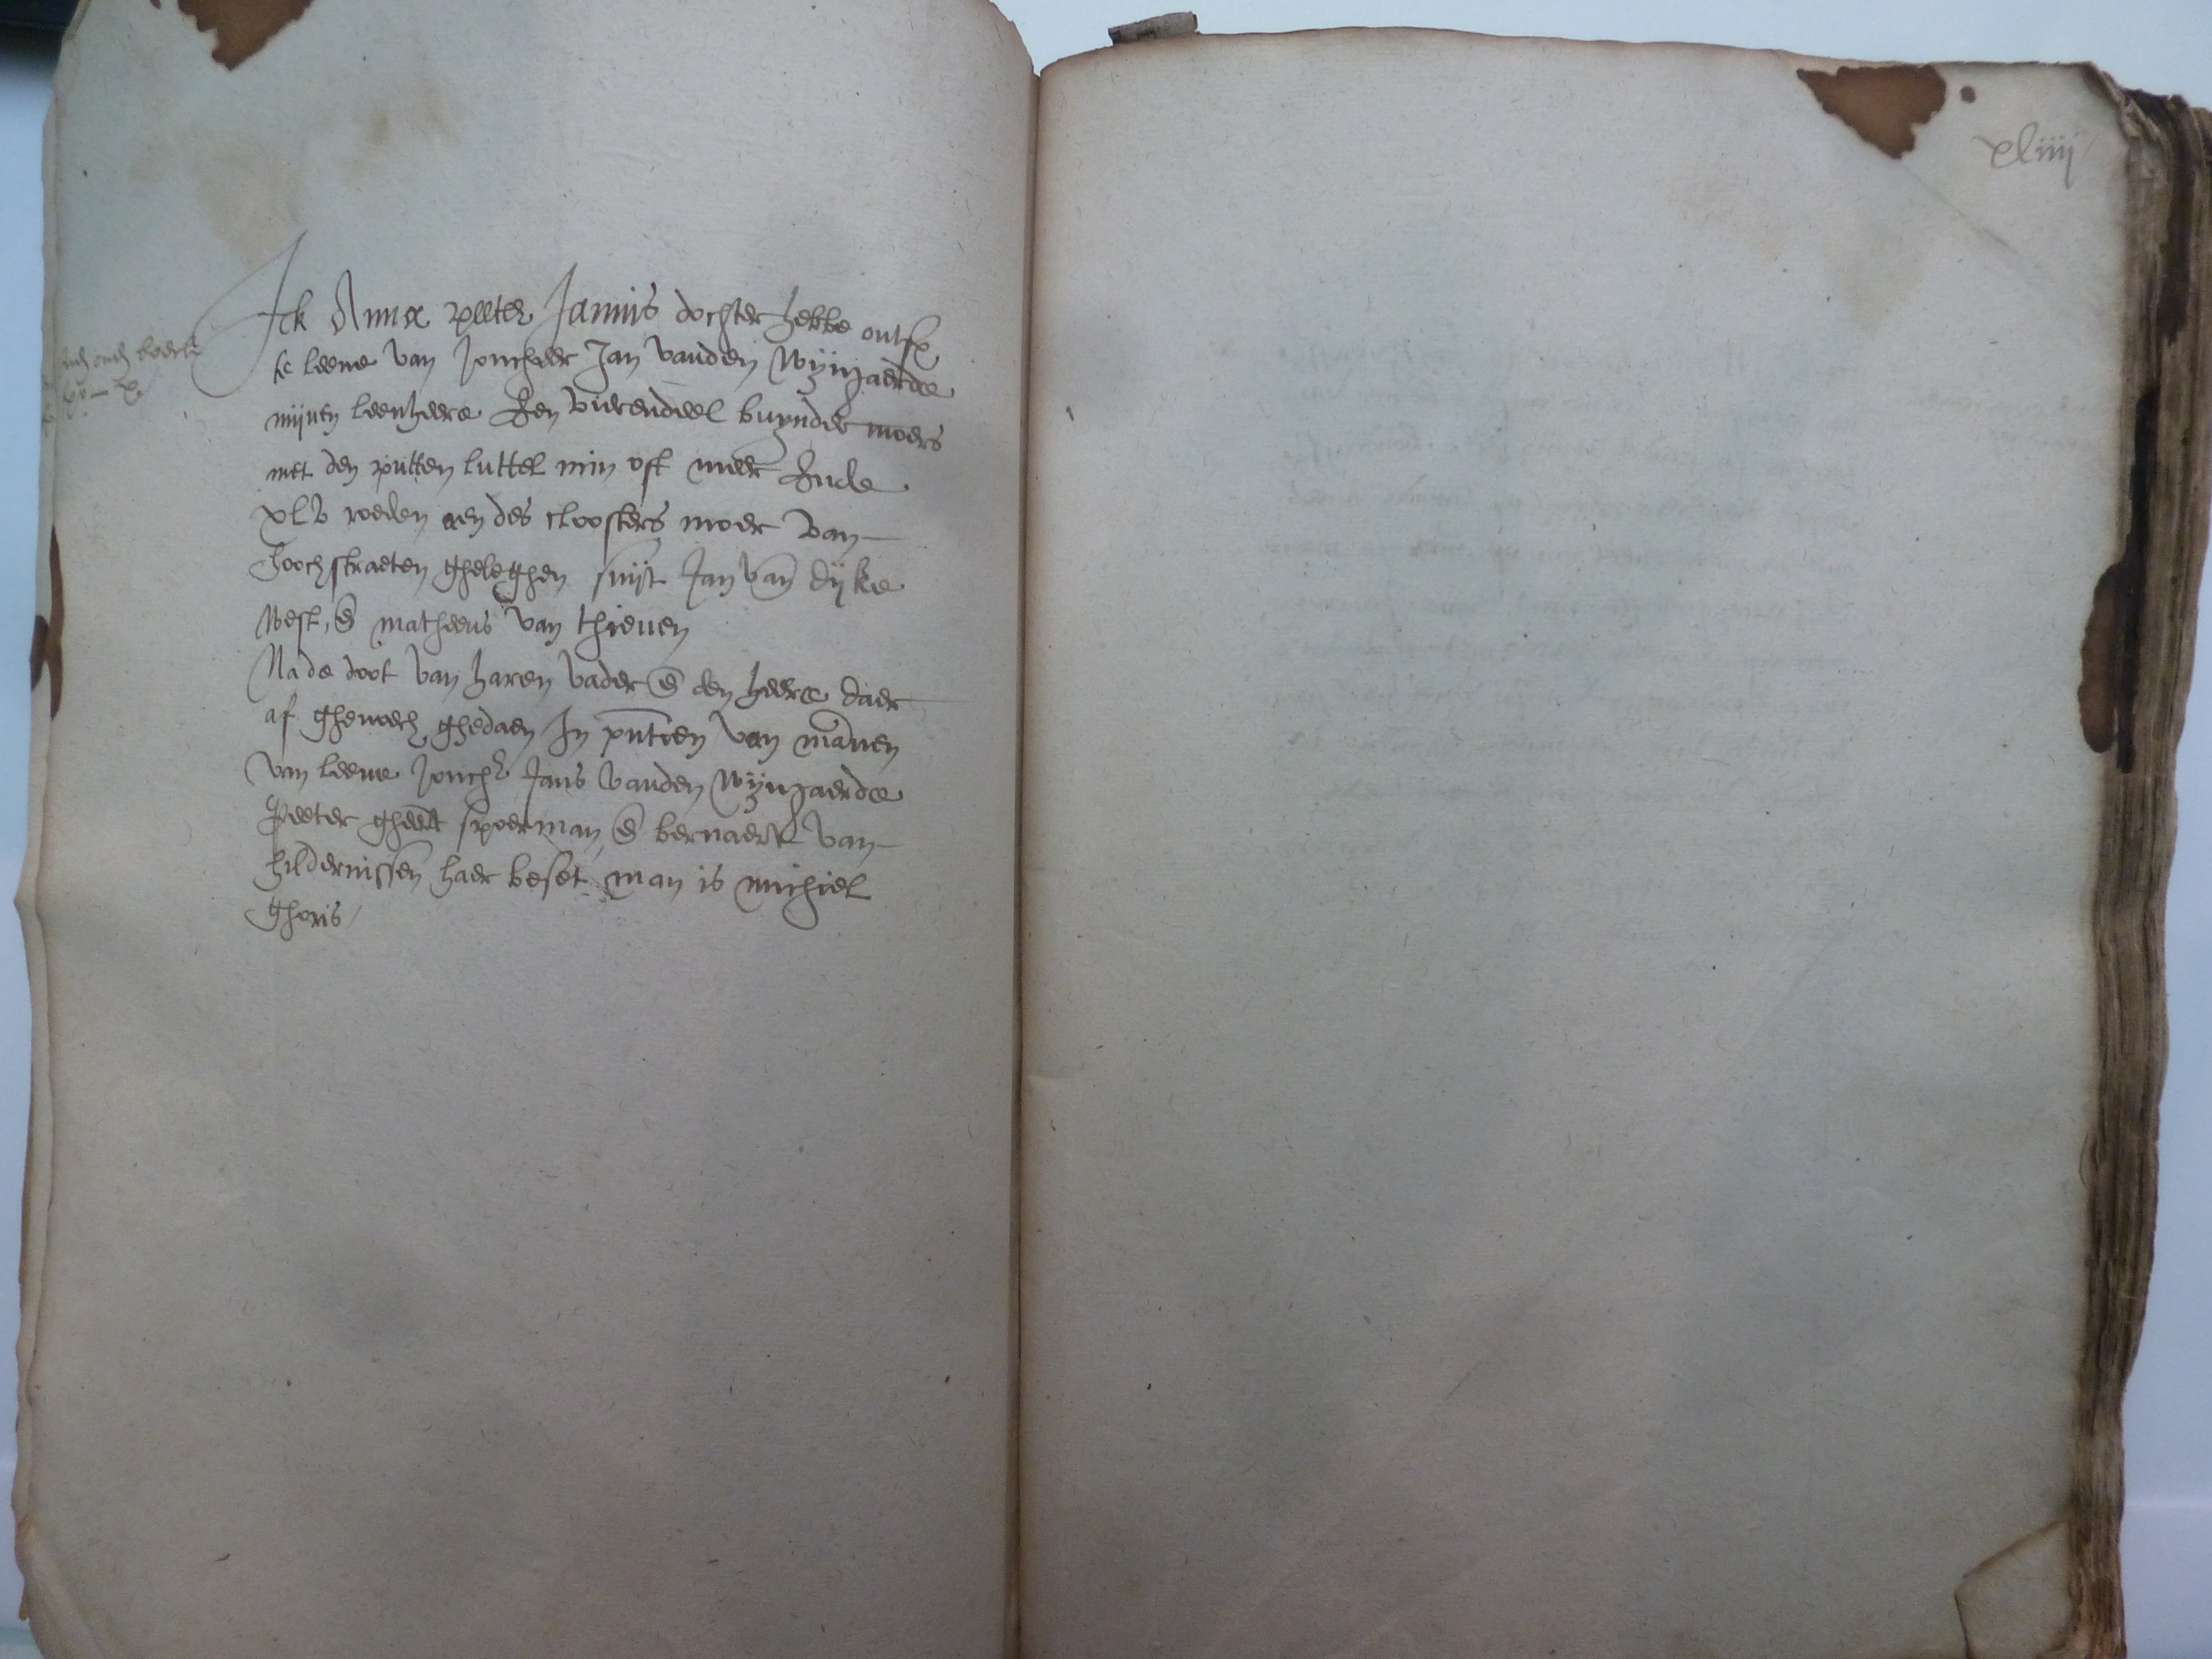 xliiij
Ick Anna peeter Jannis dochter hebbe ontf
te leene van Joncheer Jan vanden Wijngaerde
mijnen leenheere Een vierendeel buynder moers
met den putten luttel min oft meer Ende
xlv roeden aen des cloosters moer van
hoochstraeten gheleghen suijt Jan van dijke
west, en matheeus van thienen
Na de doot van haren vader en den heere daer
af ghenoech ghedaen In pntien van mannen
van leene Jonch Jans vanden Wijngaerde
Peeter gheert spoerman en bernaert van
hildernissen haer beset man is michiel
ghoris